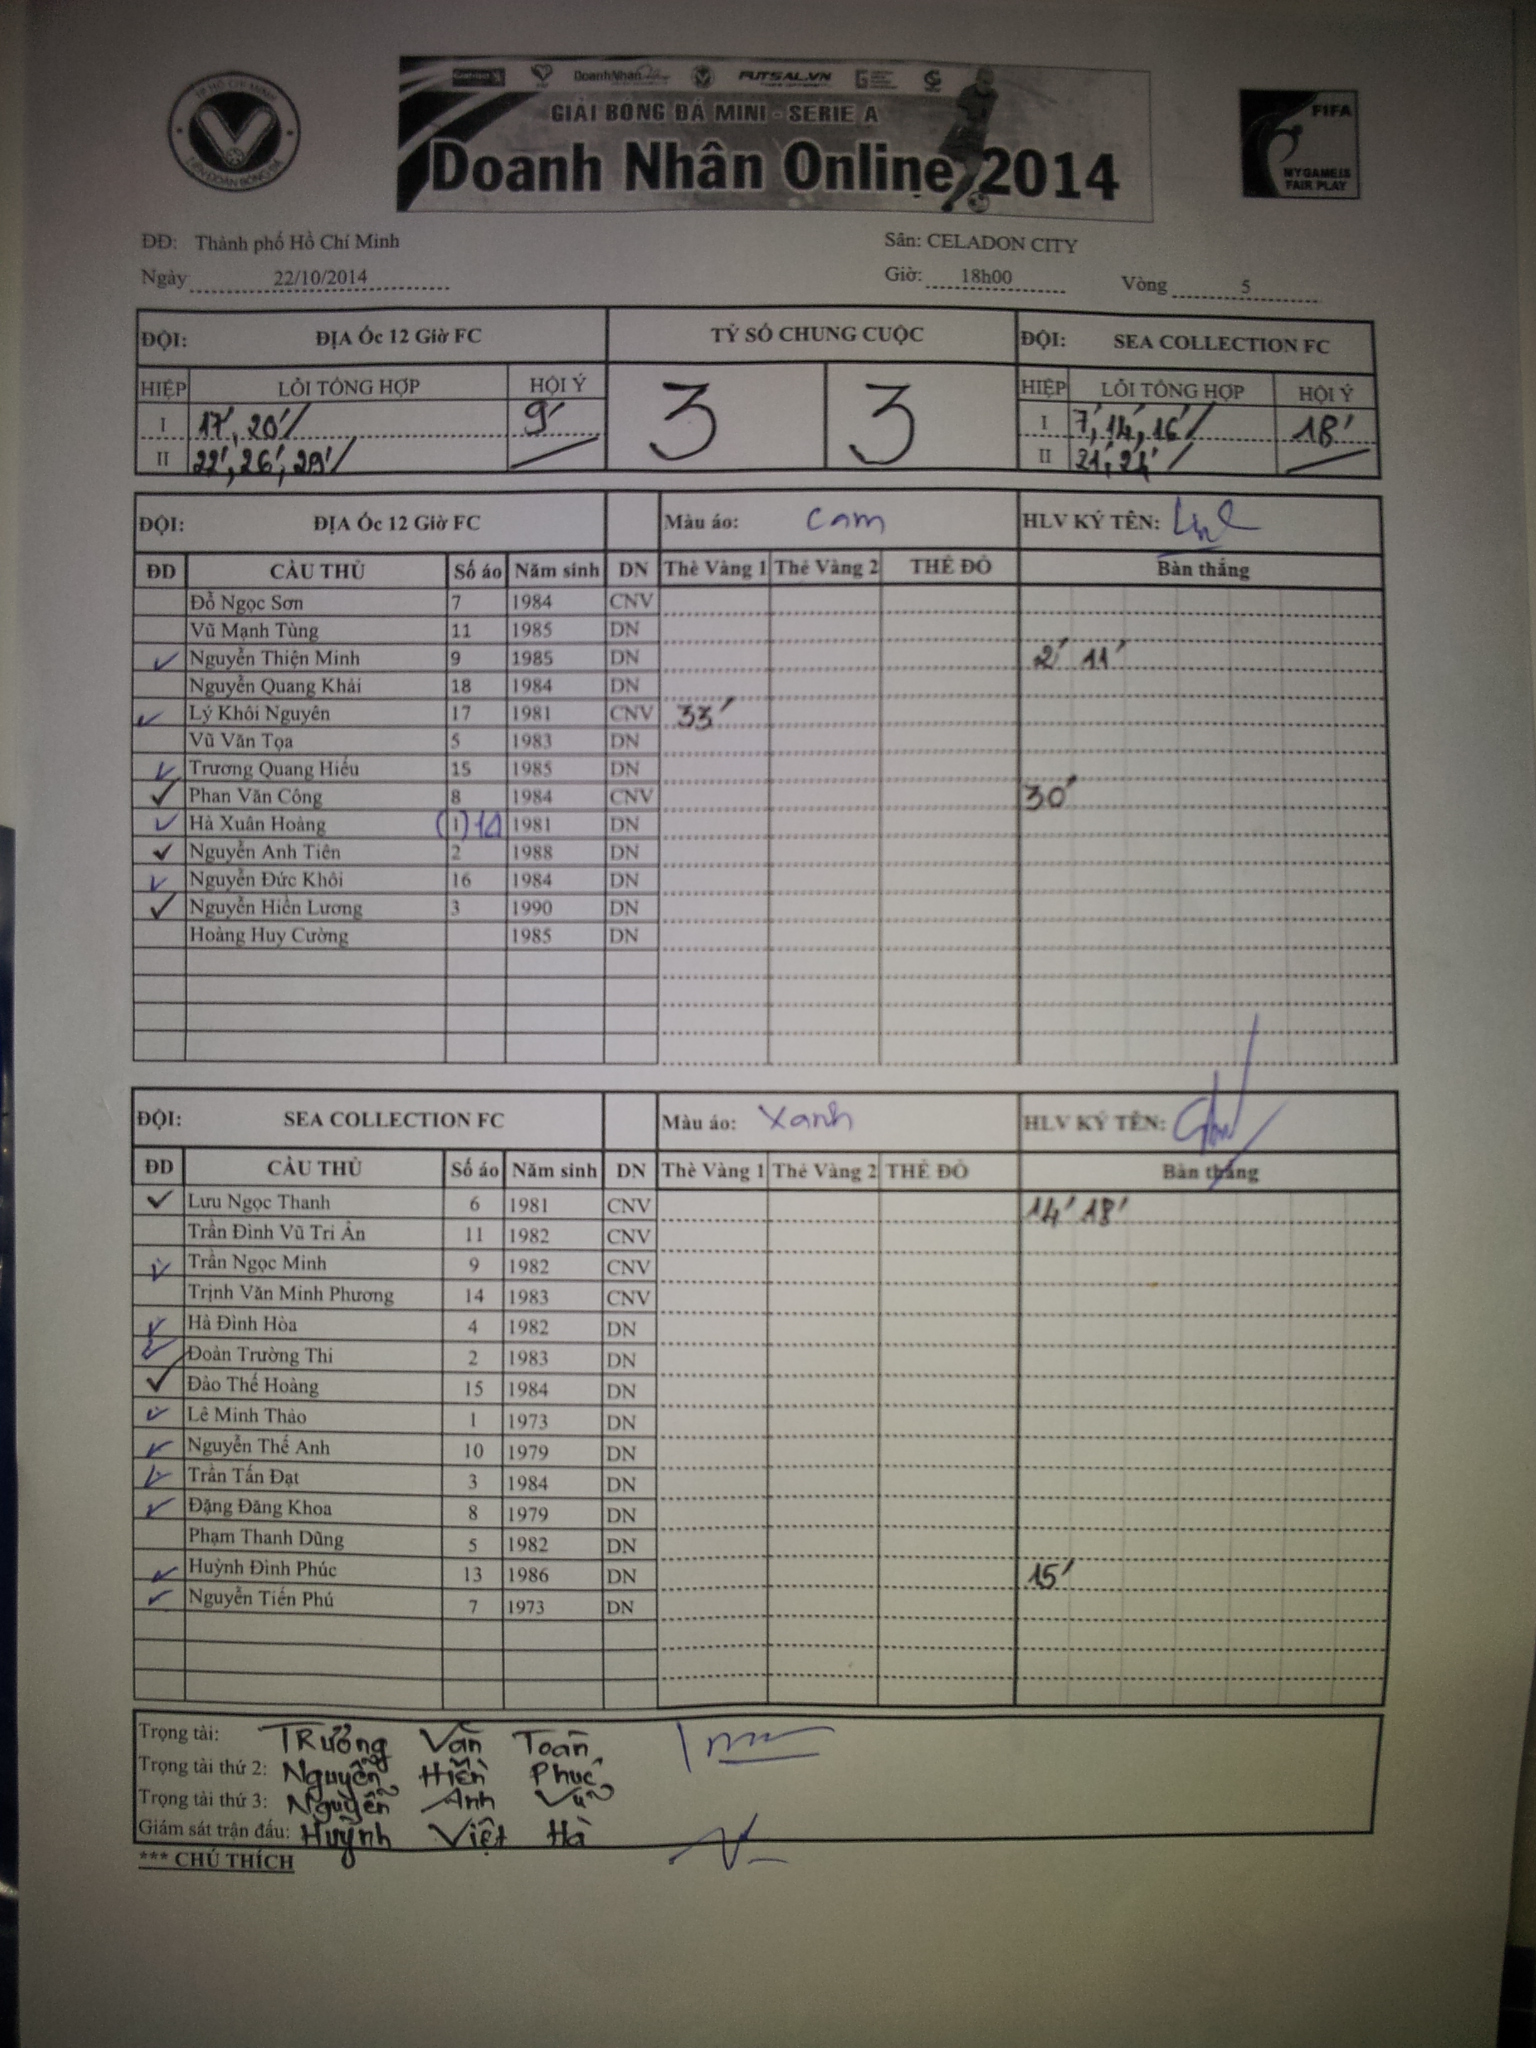 TP HỒ CHÍ MINH
LIÊN ĐOÀN BÓNG ĐÁ
DoanhNhan FUTSAL.VN
GIẢI BÓNG ĐÁ MINI - SERIE A
Doanh Nhân Online 2014
FIFA
MY GAME IS
FAIR PLAY
ĐĐ: Thành phố Hồ Chí Minh Sân: CELADON CITY
Ngày 22/10/2014 Giờ: 18h00 Vòng 5
ĐỘI: ĐỊA Ốc 12 Giờ FC TỶ SỐ CHUNG CUỘC ĐỘI: SEA COLLECTION FC
HIỆP LỖI TỔNG HỢP HỘI Ý 3 3 HIỆP LỖI TỔNG HỢP HỘI Ý
I 17', 20' / 9' I 7', 14', 16' / 18'
II 22', 26', 29' / II 21', 24' /
ĐỘI: ĐỊA Ốc 12 Giờ FC Màu áo: cam HLV KÝ TÊN:
ĐD CẦU THỦ Số áo Năm sinh DN Thẻ Vàng 1 Thẻ Vàng 2 THẺ ĐỎ Bàn thắng
Đỗ Ngọc Sơn 7 1984 CNV
Vũ Mạnh Tùng 11 1985 DN
✓ Nguyễn Thiện Minh 9 1985 DN 2' 11'
Nguyễn Quang Khải 18 1984 DN
✓ Lý Khôi Nguyên 17 1981 CNV 33'
Vũ Văn Tọa 5 1983 DN
✓ Trương Quang Hiếu 15 1985 DN
✓ Phan Văn Công 8 1984 CNV 30'
✓ Hà Xuân Hoàng (1) 1981 DN
✓ Nguyễn Anh Tiên 2 1988 DN
✓ Nguyễn Đức Khôi 16 1984 DN
✓ Nguyễn Hiền Lương 3 1990 DN
Hoàng Huy Cường 1985 DN
ĐỘI: SEA COLLECTION FC Màu áo: Xanh HLV KÝ TÊN:
ĐD CẦU THỦ Số áo Năm sinh DN Thẻ Vàng 1 Thẻ Vàng 2 THẺ ĐỎ Bàn thắng
✓ Lưu Ngọc Thanh 6 1981 CNV 14' 18'
Trần Đình Vũ Tri Ân 11 1982 CNV
✓ Trần Ngọc Minh 9 1982 CNV
Trịnh Văn Minh Phương 14 1983 CNV
✓ Hà Đình Hòa 4 1982 DN
✓ Đoàn Trường Thi 2 1983 DN
✓ Đào Thế Hoàng 15 1984 DN
✓ Lê Minh Thảo 1 1973 DN
✓ Nguyễn Thế Anh 10 1979 DN
✓ Trần Tấn Đạt 3 1984 DN
✓ Đặng Đăng Khoa 8 1979 DN
Phạm Thanh Dũng 5 1982 DN
✓ Huỳnh Đình Phúc 13 1986 DN 15'
✓ Nguyễn Tiến Phú 7 1973 DN
Trọng tài: TRƯơng Văn Toàn
Trọng tài thứ 2: Nguyễn Hiền Phúc
Trọng tài thứ 3: Nguyễn Anh Vũ
Giám sát trận đấu: Huỳnh Việt Hà
*** CHÚ THÍCH